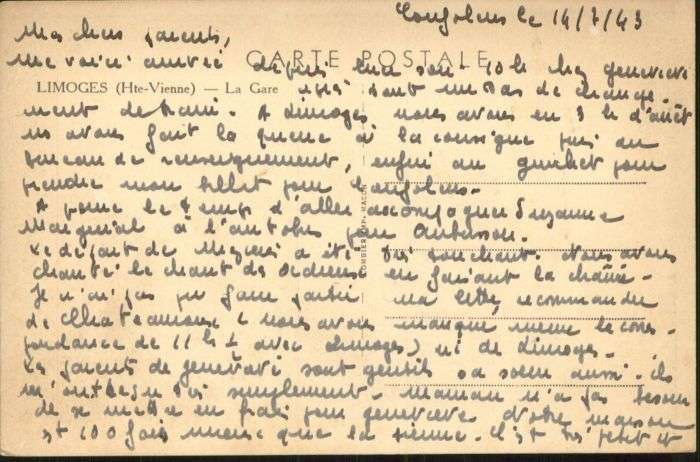 Confolens le 14/7/43
Mes chers parents,
CARTE POSTALE
me voici arrivé depuis hier soir 10h chez geneviève
LIMOGES (Hte-Vienne) — La Gare
sans de change-
ment de train. A Limoges nous avons eu 3 h d'arrêt
ns avons fait la queue à la consigne puis au
bureau de renseignement, enfin au guichet pour
prendre mon billet pour Confolens.
A peine le temps d'aller accompagner Suzanne
à l'autobus pour Aubusson.
Le départ de a été très touchant. Nous avons
chanté le chant des adieux en faisant la chaîne.
Je n'ai pas pu faire partir ma lettre recommandée
de Chateauroux (nous avons manqué même la corres-
pondance de 11 h ½ avec Limoges) ni de Limoges.
Les parents de geneviève sont gentils sa soeur aussi. ils
m'ont reçu très simplement. Maman n'a pas besoin
de se mettre en frais pour geneviève. Notre maison
est 100 fois mieux que la sienne. C'est très petit et